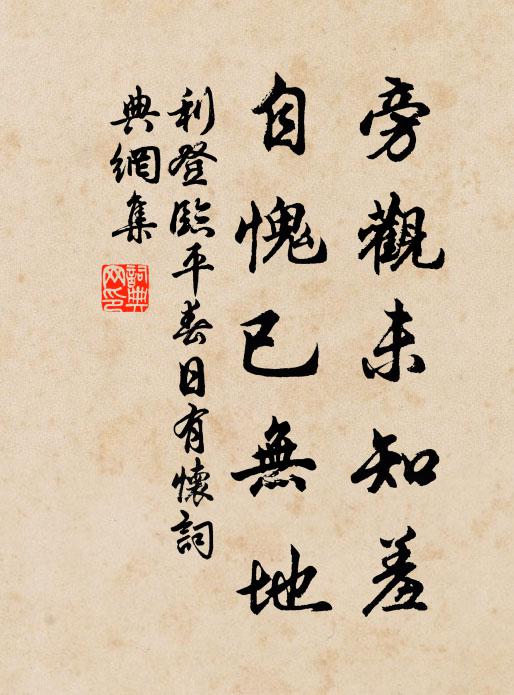 旁觀未知羞
自愧已無地
利登臨平春日有懷詞
典網集
詞典網印